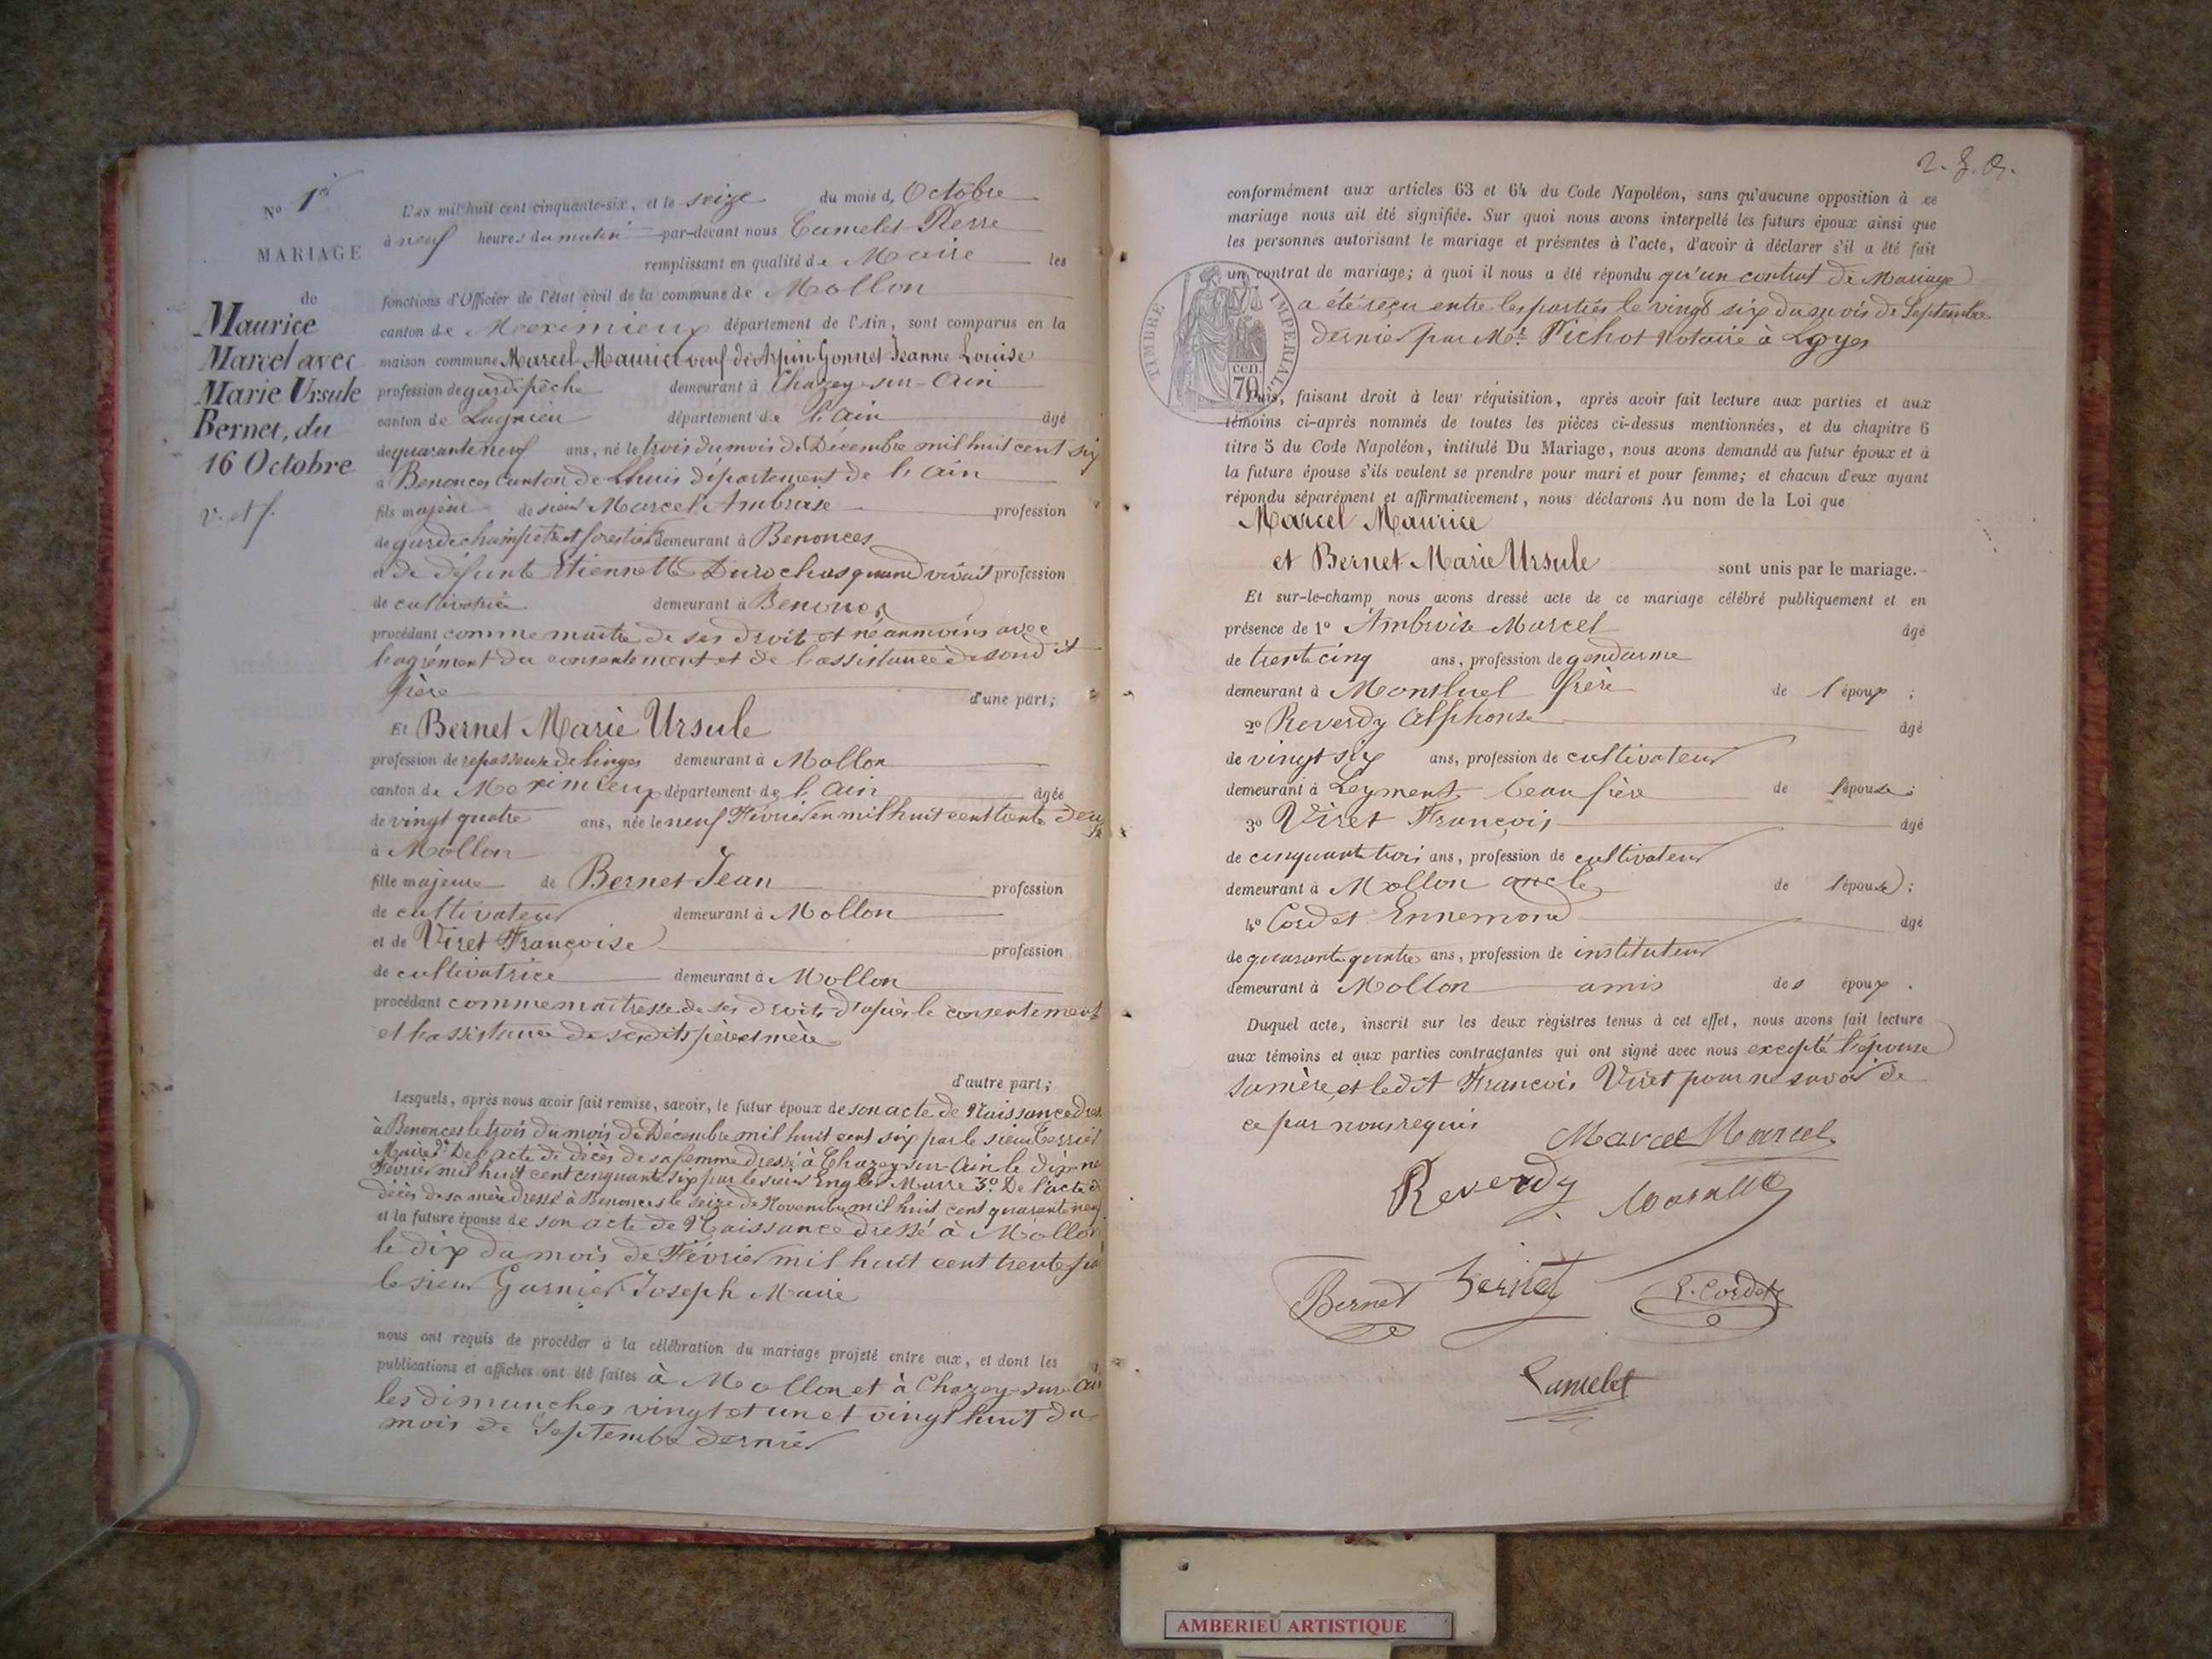 N.o 1er
MARIAGE
de
Maurice
Marcel avec
Marie Ursule
Bernet, du
16 Octobre
v. et f.
L'an mil huit cent cinquante-six, et le seize du mois d, Octobre
à neuf heures du matin par-devant nous Camelet Pierre
remplissant en qualité de Maire les
fonctions d'Officier de l'état civil de la commune de Mollon
canton de Meximieux département de l'Ain, sont comparus en la
maison commune Marcel Maurice veuf de Arpin Gonnet Jeanne Louise
profession de garde pêche demeurant à Chazey-sur-Ain
canton de Lagnieu département de l'Ain âgé
de quarante neuf ans, né le trois du mois de Décembre mil huit cent six
à Benonces canton de Lhuis département de l'Ain
fils majeur de sieur Marcel Ambroise profession
de garde champêtre et forestier demeurant à Benonces
et de défunte Etiennette Durochas quand vivait profession
de cultivatrice demeurant à Benonces
procédant comme maître de ses droits et néanmoins avec
l'agrément du consentement et de l'assistance de son dit
frère d'une part;
Et Bernet Marie Ursule
profession de repasseuse de linges demeurant à Mollon
canton de Meximieux département de l'Ain âgée
de vingt quatre ans, née le neuf Février en mil huit cent trente deux
à Mollon
fille majeure de Bernet Jean profession
de cultivateur demeurant à Mollon
et de Viret Françoise profession
de cultivatrice demeurant à Mollon
procédant comme maîtresse de ses droits d'après le consentement
et l'assistance de sesdits père et mère
d'autre part;
Lesquels, après nous avoir fait remise, savoir, le futur époux de son acte de Naissance
à Benonces le trois du mois de Décembre mil huit cent six par le sieur
Maire 2° De l'acte de décès de sa femme dressé à Chazey-sur-Ain le dix
Février mil huit cent cinquante six par le sieur Maire 3° De l'acte de
décès de sa mère dressé à Benonces le seize de Novembre mil huit cent quarante neuf
et la future épouse de son acte de Naissance dressé à Mollon
le dix du mois de Février mil huit cent trente
le sieur Garnier Joseph Maire
nous ont requis de procéder à la célébration du mariage projeté entre eux, et dont les
publications et affiches ont été faites à Mollon et à Chazey-sur-Ain
les dimanches vingt et un et vingt huit du
mois de Septembre dernier
conformément aux articles 63 et 64 du Code Napoléon, sans qu'aucune opposition à ce
mariage nous ait été signifiée. Sur quoi nous avons interpellé les futurs époux ainsi que
les personnes autorisant le mariage et présentes à l'acte, d'avoir à déclarer s'il a été fait
un contrat de mariage; à quoi il nous a été répondu qu'un contrat de Mariage
a été reçu entre les parties le vingt six du mois de Septembre
dernier par Me. Pichot Notaire à Loyes
TIMBRE IMPERIAL
70 cen.
Puis, faisant droit à leur réquisition, après avoir fait lecture aux parties et aux
témoins ci-après nommés de toutes les pièces ci-dessus mentionnées, et du chapitre 6
titre 5 du Code Napoléon, intitulé Du Mariage, nous avons demandé au futur époux et à
la future épouse s'ils veulent se prendre pour mari et pour femme; et chacun d'eux ayant
répondu séparément et affirmativement, nous déclarons Au nom de la Loi que
Marcel Maurice
et Bernet Marie Ursule sont unis par le mariage.
Et sur-le-champ nous avons dressé acte de ce mariage célébré publiquement et en
présence de 1° Ambroise Marcel âgé
de trente cinq ans, profession de gendarme
demeurant à Montluel frère de l'époux;
2° Reverdy Alphonse âgé
de vingt six ans, profession de cultivateur
demeurant à Leyment beau frère de l'épouse;
3° Viret François âgé
de cinquante trois ans, profession de cultivateur
demeurant à Mollon oncle de l'épouse;
4° Cordet Ennemond âgé
de quarante quatre ans, profession de instituteur
demeurant à Mollon amis des époux.
Duquel acte, inscrit sur les deux règistres tenus à cet effet, nous avons fait lecture
aux témoins et aux parties contractantes qui ont signé avec nous excepté l'épouse
sa mère, et ledit François Viret pour ne savoir de
ce par nous requis
Marcel Marcel
Reverdy
Bernet Bernet E. Cordet
Camelet
AMBERIEU ARTISTIQUE